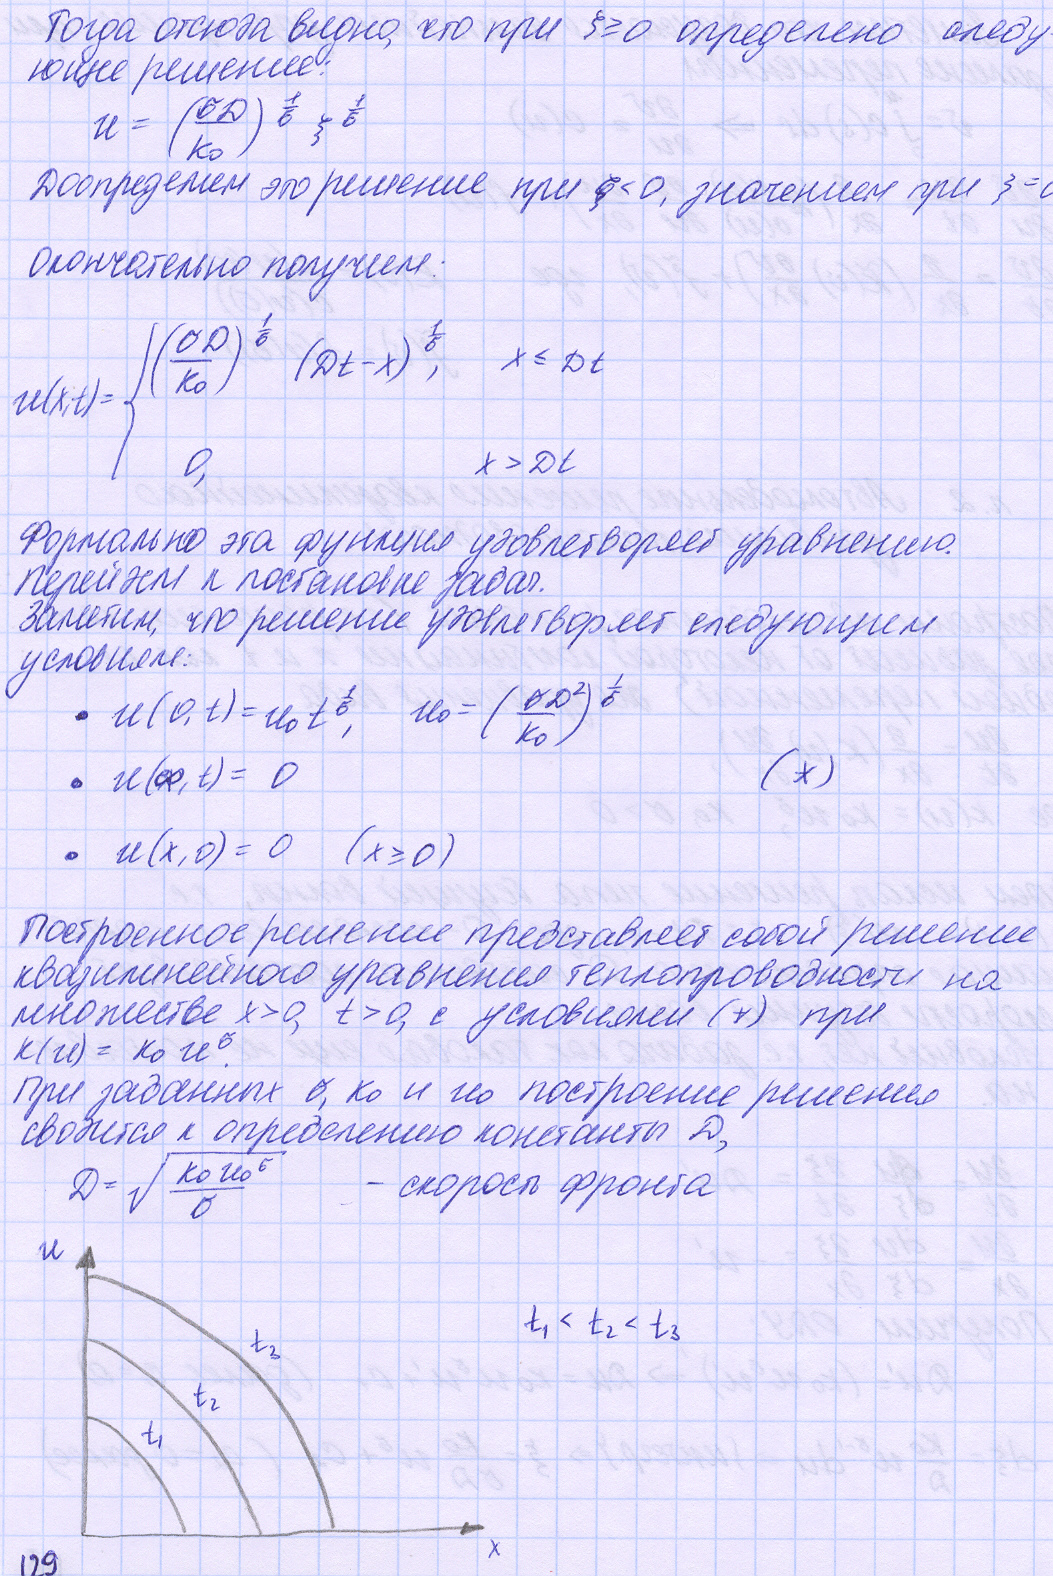 Тогда отсюда видно, что при ξ≥0 определено следу-
ющее решение:
u = (σD/k₀)^(1/σ) ξ^(1/σ)
Доопределим это решение при ξ<0, значением при ξ=0
Окончательно получим:
u(x,t) = { (σD/k₀)^(1/σ) (Dt-x)^(1/σ), x ≤ Dt
0, x > Dt
Формально эта функция удовлетворяет уравнению.
Перейдём к постановке задач.
Заметим, что решение удовлетворяет следующим
условиям:
• u(0,t) = u₀ t^(1/σ), u₀ = (σD²/k₀)^(1/σ)
• u(∞,t) = 0 (*)
• u(x,0) = 0 (x≥0)
Построенное решение представляет собой решение
квазилинейного уравнения теплопроводности на
множестве x>0, t>0, с условиями (*) при
k(u) = k₀ u^σ.
При заданных σ, k₀ и u₀ построение решения
сводится к определению константы D,
D = √(k₀ u₀^σ/σ) - скорость фронта
u
t₁ < t₂ < t₃
t₃
t₂
t₁
x
129